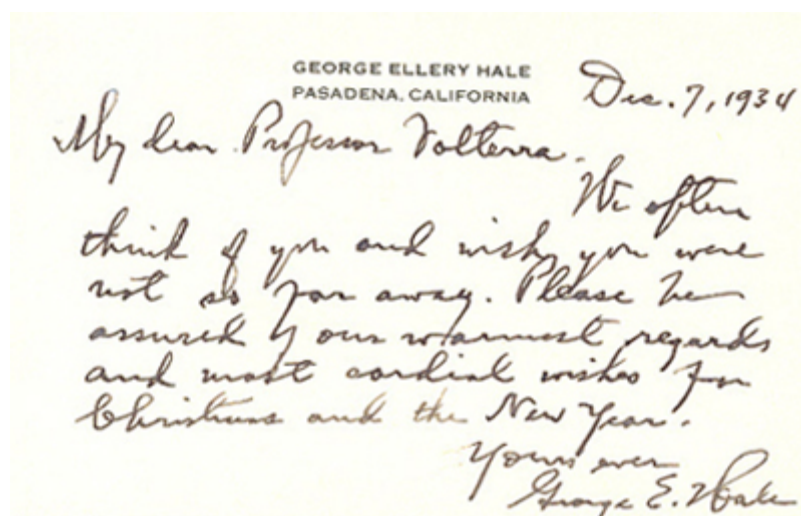 GEORGE ELLERY HALE
PASADENA, CALIFORNIA
Dec. 7, 1934
My dear Professor Volterra.
We often
think of you and wish you were
not so far away. Please be
assured of our warmest regards
and most cordial wishes for
Christmas and the New Year.
Yours ever
George E. Hale